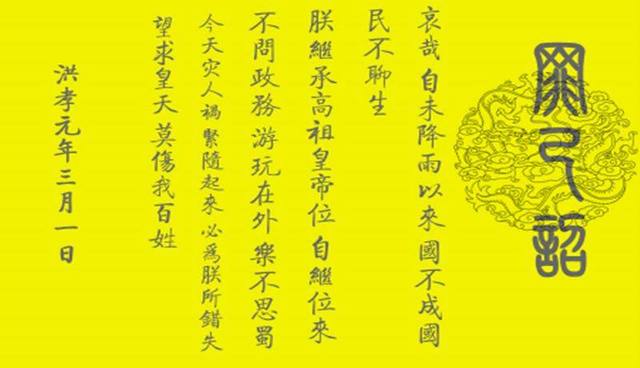 罪己詔
哀哉自未降雨以來國不成國
民不聊生
朕繼承高祖皇帝位自繼位來
不問政務游玩在外樂不思蜀
今天灾人禍緊隨起來必為朕所錯失
望求皇天莫傷我百姓
洪孝元年三月一日